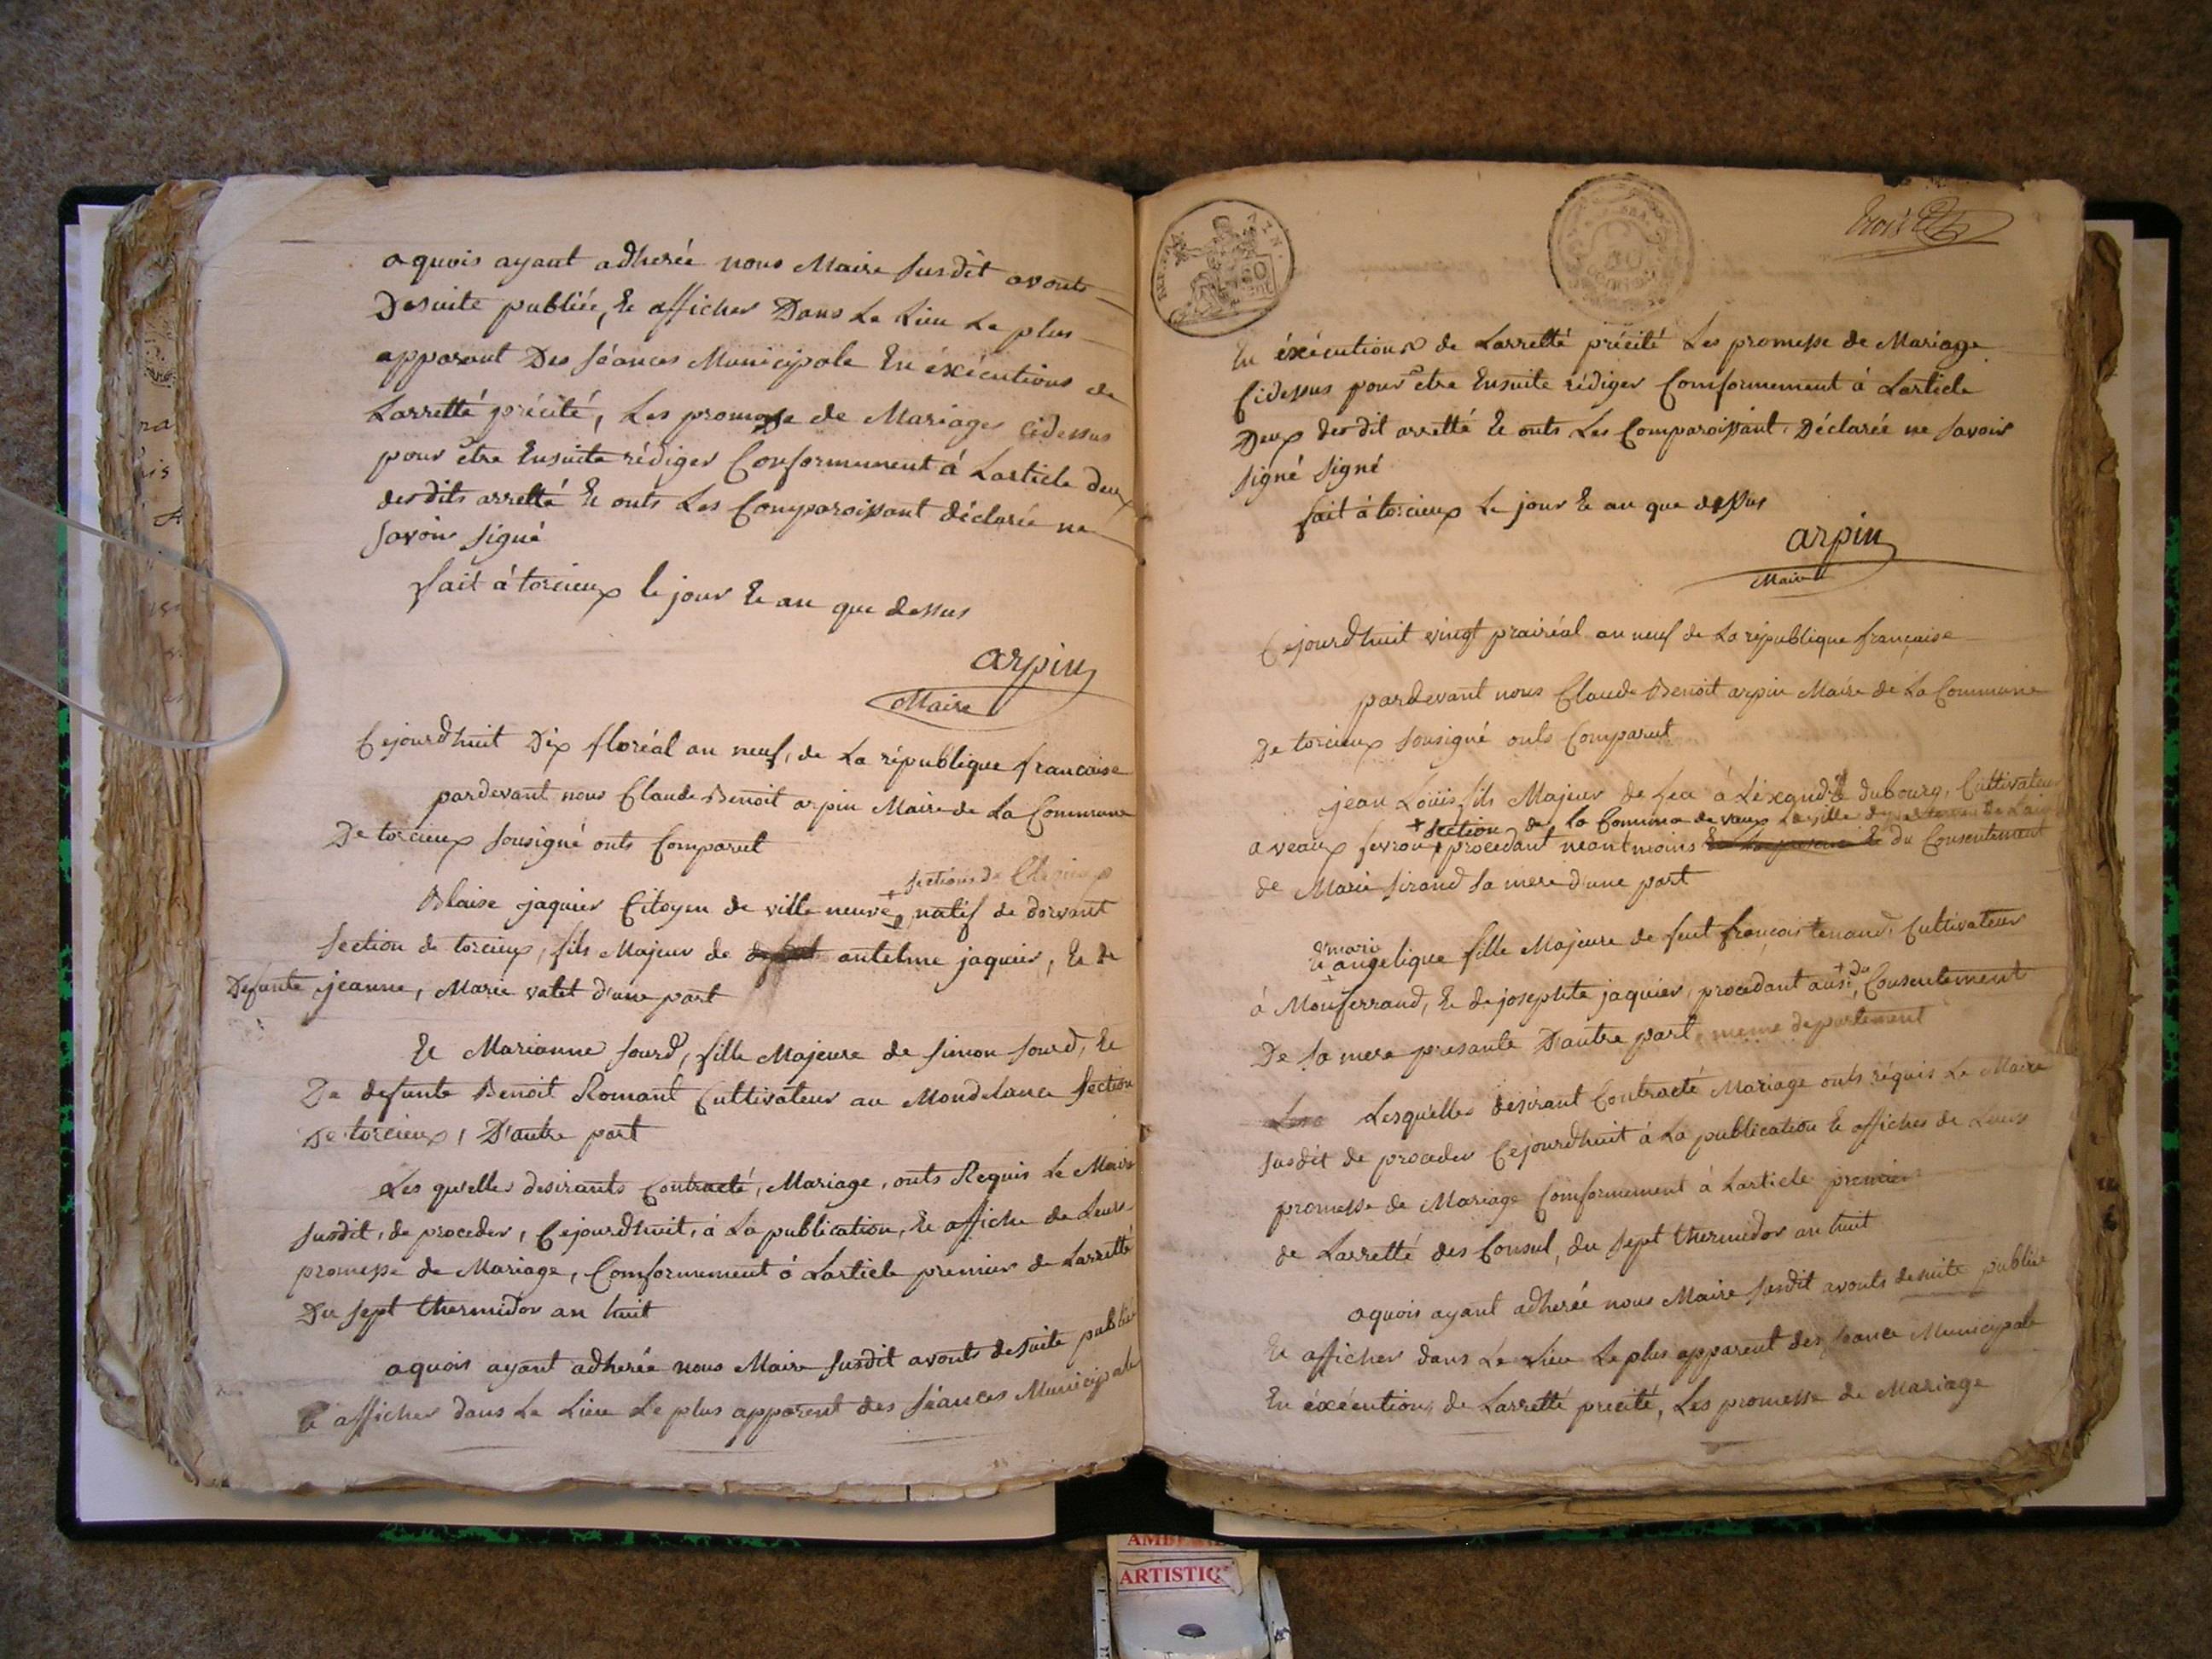 aquois ayant adherée nous Maire susdit avonts
Desuite publiée, et afficher Dans Le Lieu Le plus
apparant Des séances Municipale En éxécutions de
Larretté précité, Les promesse de Mariages cidessus
pour etre Ensuite rédiger Conformément á Larticle deux
desdits arretté Et onts Les Comparoissant déclarée ne
savoir signé
fait á torcieux le jour Et an que dessus
arpin
Maire
Cejourdhuit Dix floréal an neuf, de La république francaise
pardevant nous Claude Benoit arpin Maire de La Commune
De torcieux sousigné onts Comparut
section de
Blaise jaquier Citoyen de ville neuve, natif de dorvant
section de torcieux, fils Majeur de antelme jaquier, Et de
Defunte jeanne, Marie valet d'une part
Et Marianne sourd, fille Majeure de simon sourd, Et
De defunte Benoit Romant Cultivateur au Mondelance section
De torcieux, D'autre part
Les quelles desirants Contracté, Mariage, onts Requis Le Maire
susdit, de proceder, Cejourdhuit, á La publication, Et affiche de Leurs
promesse de Mariage, Comformement á Larticle premier de Larretté
Du sept thermidor an huit
aquois ayant adherée nous Maire susdit avonts desuite publiée
Et afficher dans Le Lieu Le plus apparent des séances Municipale
trois
En éxécutions de Larretté précité Les promesse de Mariage
Cidessus pour etre Ensuite rédiger Comformement á Larticle
Deux desdit arretté Et onts Les Comparoissant Déclarée ne savoir
signé signé
fait á torcieux Le jour Et an que dessus
arpin
Maire
Cejourdhuit vingt prairéal an neuf de La république francaise
pardevant nous Claude Benoit arpin Maire de La Commune
De torcieux sousigné onts Comparut
jean Loüis fils Majeur de feu á Lexandre dubourg, Cultivateur
+ section de La Commune de vaux La ville departement de Lain
a veaux fevroux, procedant neantmoins du Consentement
de Marie sirand sa mere d'une part
marie
Et angelique fille Majeure de feut francois tenand, Cultivateur
á Monferrand, Et de josephte jaquier, procedant ausi du Consentement
De sa mere presante D'autre part, meme departement
Lesquelles desirant Contracté Mariage onts réquis Le Maire
susdit de proceder Cejourdhuit á La publication Et affiches de Leurs
promesse de Mariage Comformement á Larticle premier
de Larretté des Consul, du sept thermidor an huit
aquois ayant adherée nous Maire susdit avonts desuite publiée
Et afficher dans Le Lieu Le plus apparent des seance Municipale
En éxécutions de Larretté precité, Les promesse de Mariage
ARTISTIQ